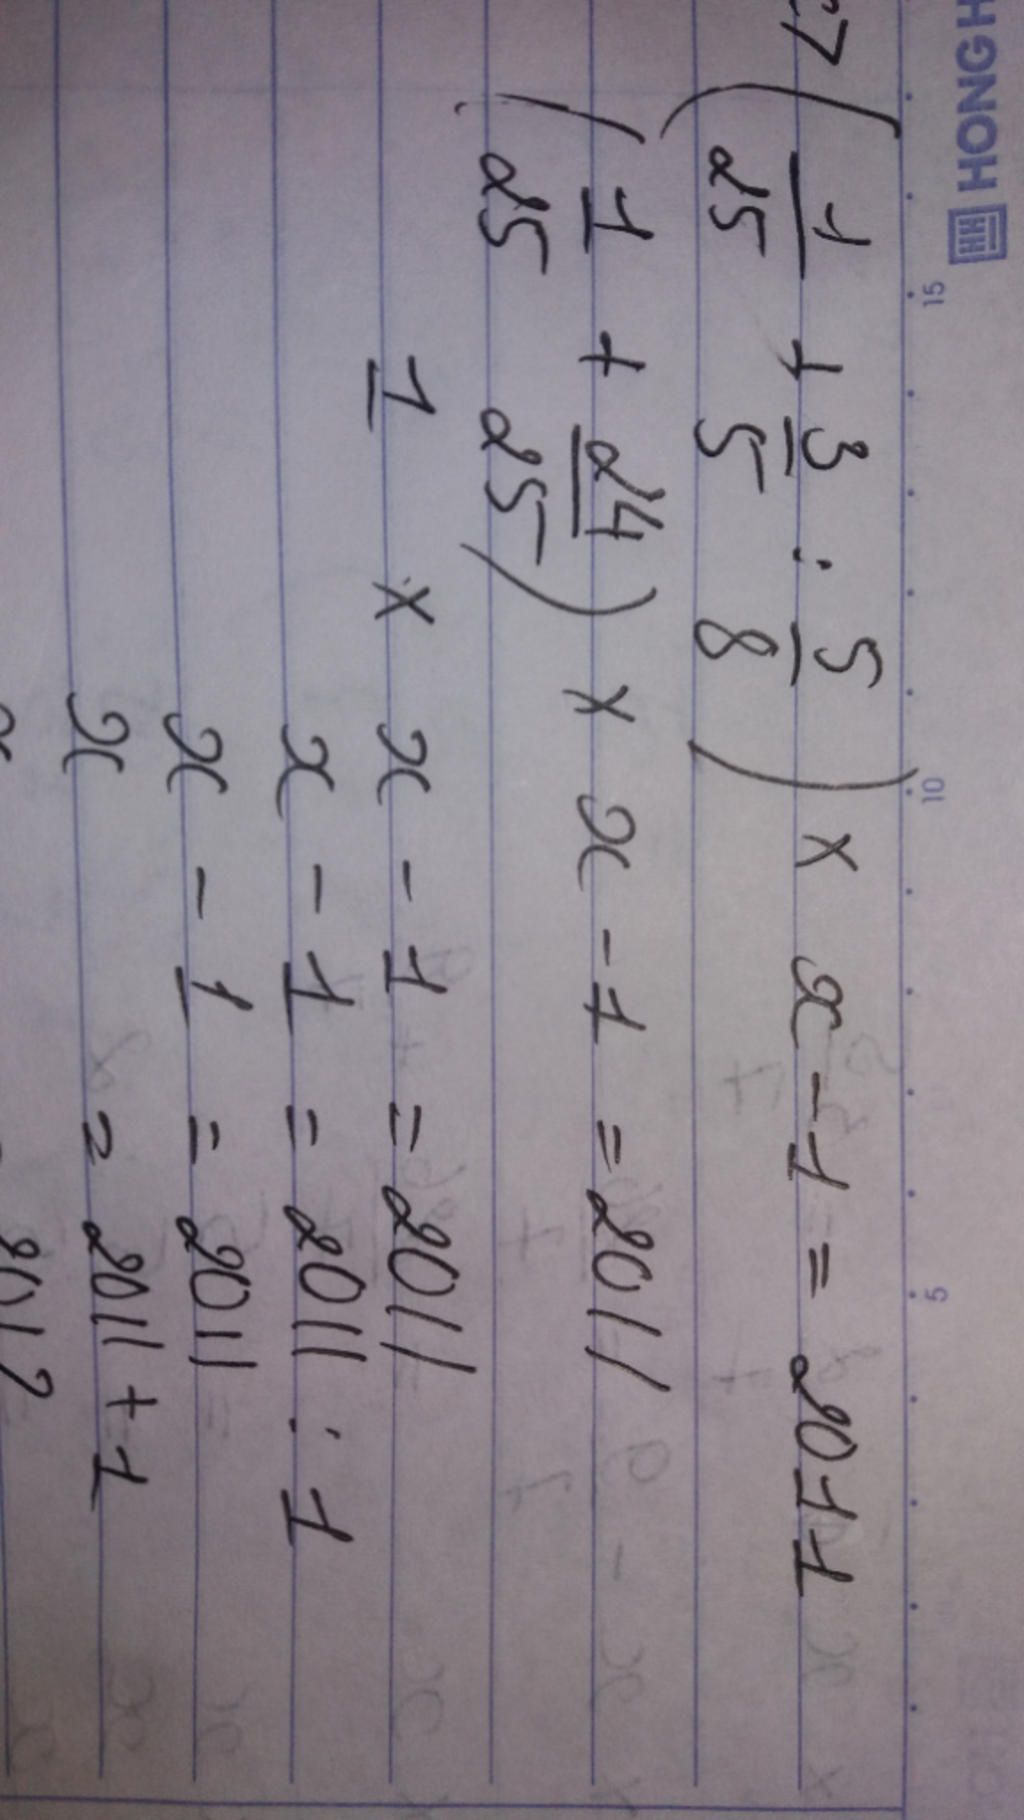 HONG H
15 10 5
c7 ( 1/25 + 3/5 : 5/8 ) x x - 1 = 2011
( 1/25 + 24/25 ) x x - 1 = 2011
1 x x - 1 = 2011
x - 1 = 2011 : 1
x - 1 = 2011
x = 2011 + 1
x 2012